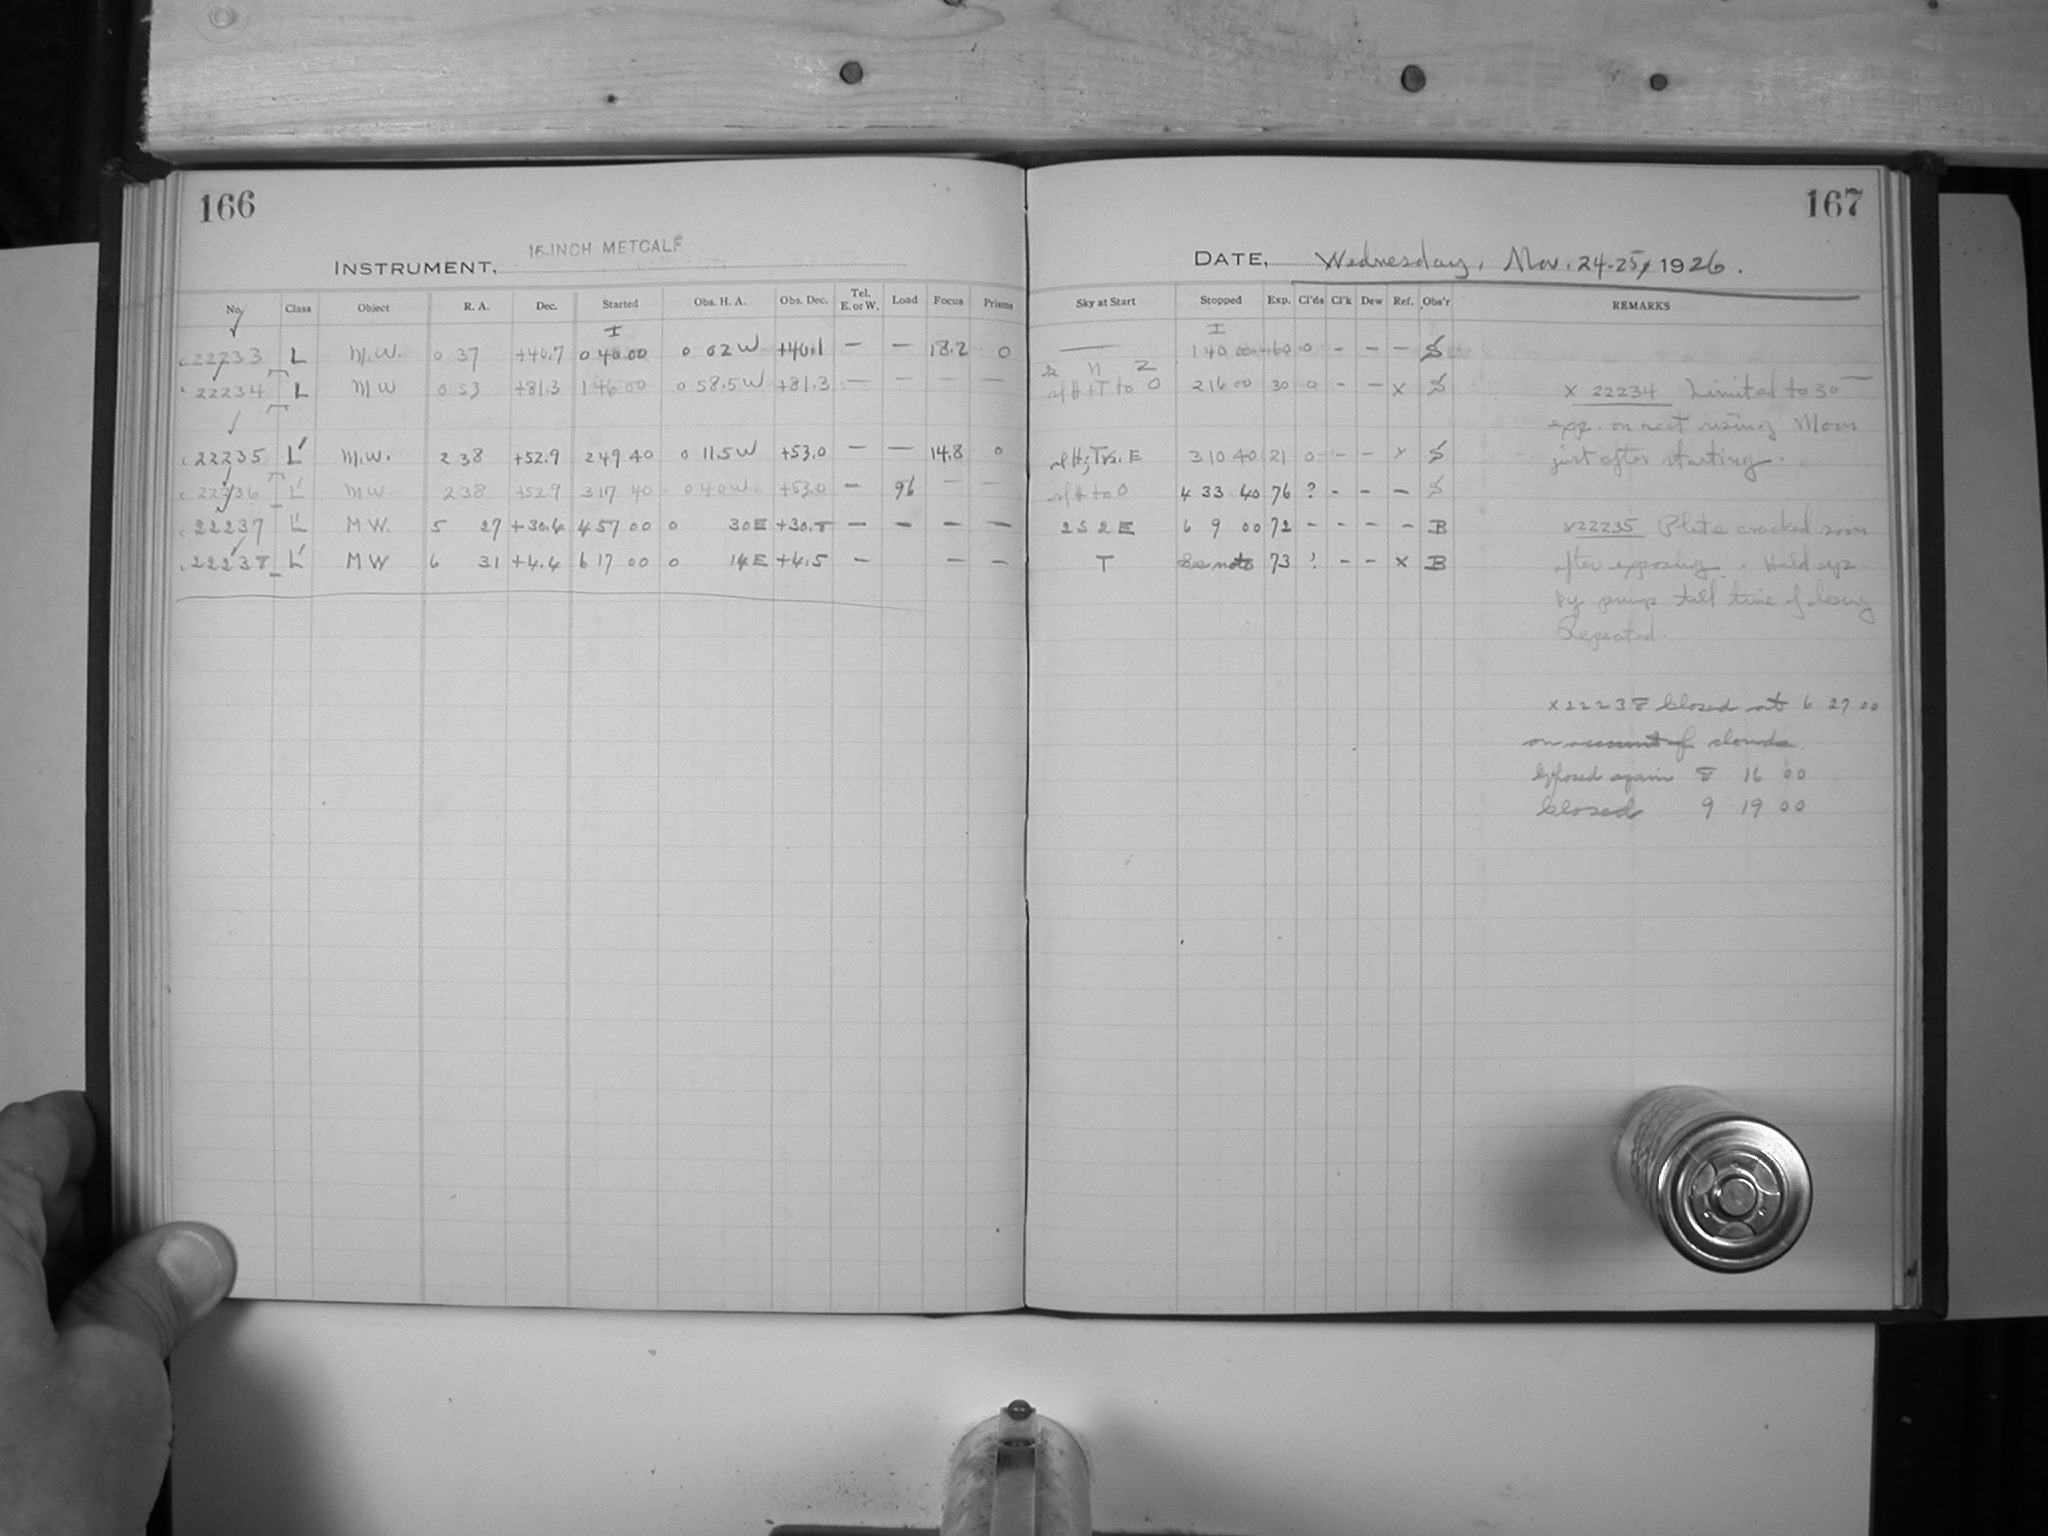 166
INSTRUMENT, 16-INCH METCALF
No. Class Object R. A. Dec. Started Obs. H. A. Obs. Dec. Tel. E. or W. Load Focus Prisms
I
22233 L M.W. 0 37 +40.7 0 40 00 0 02 W +40.1 — — 18.2 0
22234 L MW 0 53 +81.3 1 46 00 0 58.5 W +81.3 — — — —
22235 L' M.W. 2 38 +52.9 2 49 40 0 11.5 W +53.0 — — 14.8 0
22236 L' MW. 2 38 +52.9 3 17 40 0 40 W. +53.0 — 96 — —
22237 L' MW. 5 27 +30.4 4 57 00 0 30 E +30.8 — — — —
22238 L' MW 6 31 +4.4 6 17 00 0 14 E +4.5 — — —
167
DATE, Wednesday, Nov. 24-25, 1926.
Sky at Start Stopped Exp. Cl'ds Cl'k Dew Ref. Obs'r REMARKS
I
— 1 40 00 60 0 - - - S
to 0 2 16 00 30 0 - - x S
E 3 10 40 21 0 - - x S
to 0 4 33 40 76 ? - - - S
2 S 2 E 6 9 00 72 - - - - B
T See note 73 ? - - x B
x 22234 Limited to 30
exp. on acct rising Moon
just after starting.
x 22235 Plate cracked soon
after exposing. Held up
by pump till time of closing
Repeated.
x 22238 Closed at 6 27 00
on account of clouds.
Exposed again 8 16 00
Closed 9 19 00